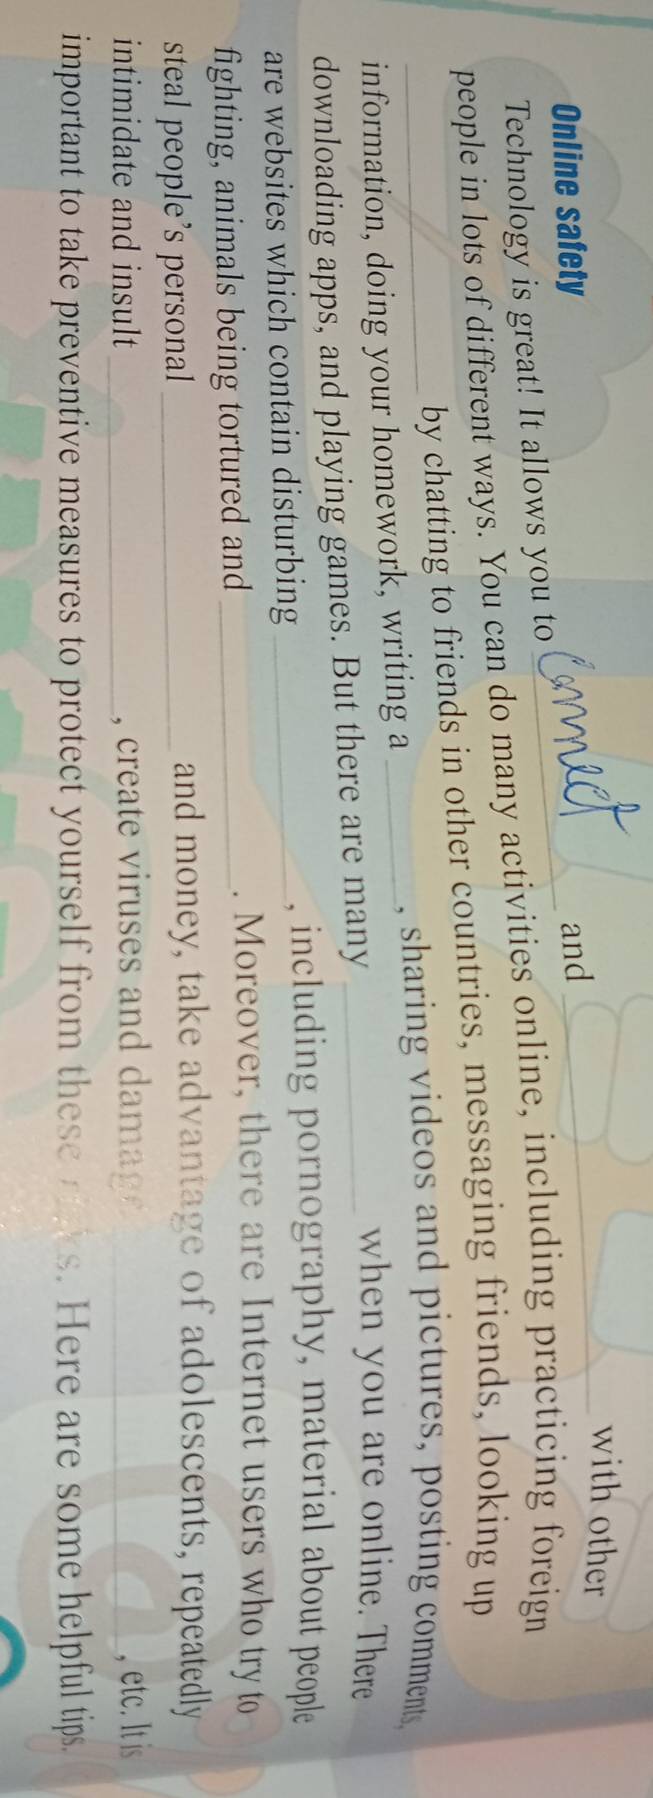 Online safety
Technology is great! It allows you to Connect and ________ with other
people in lots of different ways. You can do many activities online, including practicing foreign
________ by chatting to friends in other countries, messaging friends, looking up
information, doing your homework, writing a ________, sharing videos and pictures, posting comments,
downloading apps, and playing games. But there are many ________ when you are online. There
are websites which contain disturbing ________, including pornography, material about people
fighting, animals being tortured and ________. Moreover, there are Internet users who try to
steal people's personal ________ and money, take advantage of adolescents, repeatedly
intimidate and insult ________, create viruses and damage ________, etc. It is
important to take preventive measures to protect yourself from these risks. Here are some helpful tips.